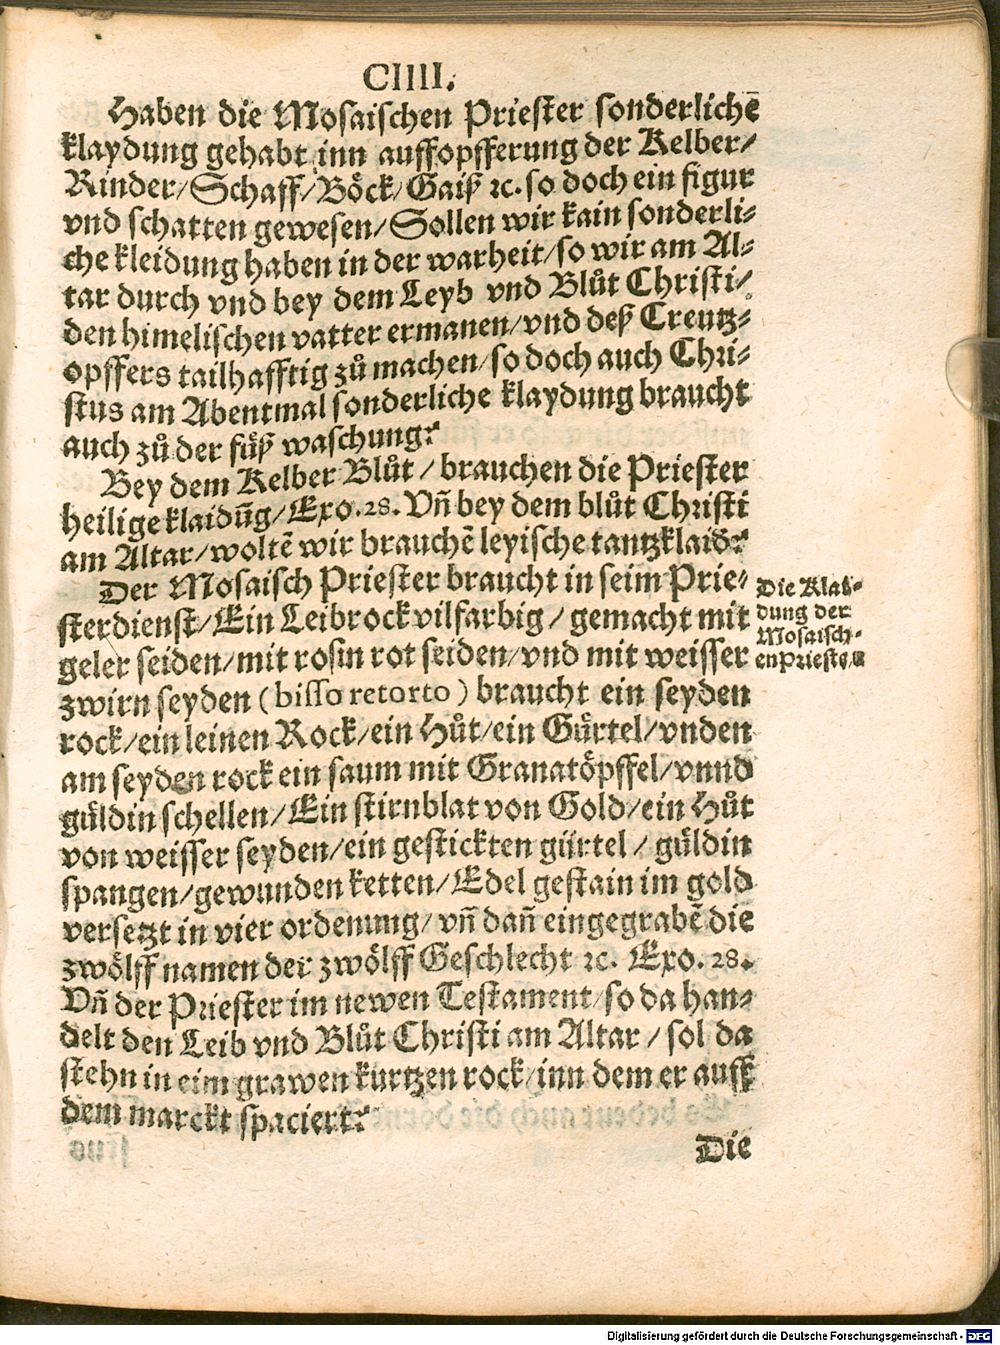 CIIII.
Haben die Mosaischen Priester sonderlichē
klaydung gehabt inn auffopfferung der Kelber/
Rinder/Schaff/Böck/Gaiß ꝛc. so doch ein figur
vnd schatten gewesen/Sollen wir kain sonderli⸗
che kleidung haben in der warheit/so wir am Al⸗
tar durch vnd bey dem Leyb vnd Blůt Christi/
den himelischen vatter ermanen/vnd deß Creutz⸗
opffers tailhafftig zů machen/so doch auch Chri⸗
stus am Abentmal sonderliche klaydung braucht
auch zů der fůß waschung?
Bey dem Kelber Blůt/brauchen die Priester
heilige klaidūg/Exo. 28. Vn̄ bey dem blůt Christi
am Altar/woltē wir brauchē leyische tantzklaid?
Der Mosaisch Priester braucht in seim Prie⸗
sterdienst/Ein Leibrock vilfarbig/gemacht mit
geler seiden/mit rosin rot seiden/vnd mit weisser
zwirn seyden (bisso retorto) braucht ein seyden
rock/ein leinen Rock/ein Hůt/ein Gürtel/vnden
am seyden rock ein saum mit Granatöpffel/vnnd
güldin schellen/Ein stirnblat von Gold/ein Hůt
von weisser seyden/ein gestickten gürtel/güldin
spangen/gewunden ketten/Edel gestain im gold
versetzt in vier ordenung/vn̄ dan̄ eingegrabē die
zwölff namen der zwölff Geschlecht ꝛc. Exo. 28.
Vn̄ der Priester im newen Testament/so da han⸗
delt den Leib vnd Blůt Christi am Altar/sol da
stehn in eim grawen kurtzen rock/inn dem er auff
dem marckt spaciert?
Die
Die Klai⸗
dung der
Mosaisch⸗
en Priester
Digitalisierung gefördert durch die Deutsche Forschungsgemeinschaft - DFG